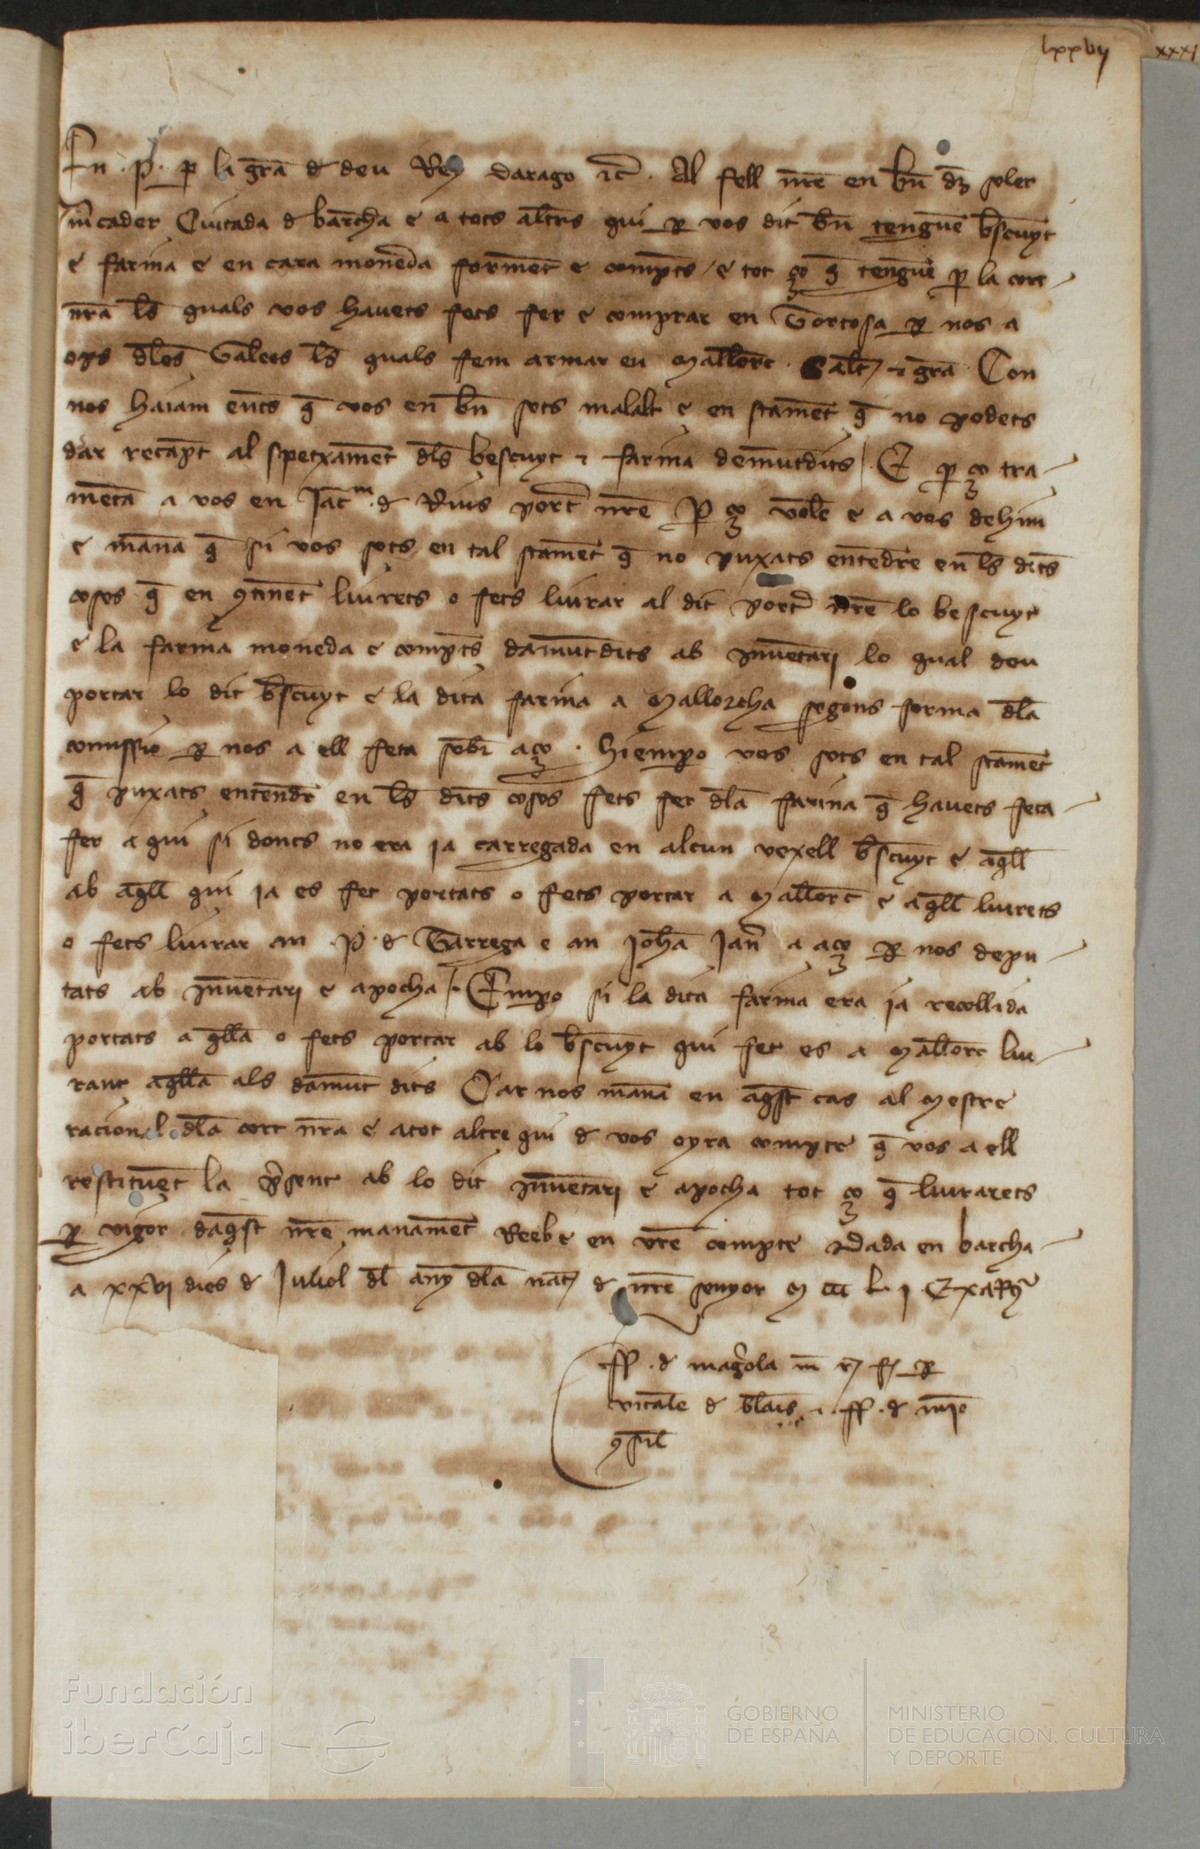 lxxvij xxxi
En .P. per la gra de deu Rey darago etc. Al feel nre en bn des soler
mcader Ciutada de barcha e a tots altres qui per vos dit bn tenguen bescuyt
e farina e en cara moneda forment e comptes e tot ço q tenguen per la cort
nra los quals vos havets fets fer e comprar en Tortosa per nos a
ops dles Galees les quals fem armar en Mallorc. Salt e gra Con
nos haiam entes q vos en bn sots malalt e en stament q no podets
dar recapt al spetxament dls bescuyt e farina demuntdits E per ço tra
metam a vos en Iacm de Rius port nre Per ço volem e a vos dehim
e manam q si vos sots en tal stament q no puxats entendre en les dites
coses q en continent liurets o fets liurar al dit porter nre lo bescuyt
e la farina moneda e comptes damuntdits ab inventari lo qual deu
portar lo dit bescuyt e la dita farina a Mallorcha segons forma dla
comissio per nos a ell feta sobr aço. hiempero vos sots en tal stament
q puxats entendre en les dites coses fets fer dla farina q havets feta
fer aqui si doncs no era ia carregada en alcun vexell bescuyt e aqll
ab aqll qui ia es fet portats o fets portar a Mallorc e aqll liurets
o fets liurar an .P. de Tarrega e an Joha Jan a aço per nos depu
tats ab inventari e apocha Empo si la dita farina era ia recollida
portats aqlla o fets portar ab lo bescuyt qui fet es a Mallorc liu
rant aqlla als damunt dits Car nos manam en aqst cas al Mestre
racional dla cort nra e atot altre qui de vos oyra compte q vos a ell
restituent la present ab lo dit inventari e apocha tot ço q liurarets
per vigor daqst nre manament Reebe en vre compte Dada en barcha
a xxvi dies de Juliol dl any dla nat de nre senyor M CCC L i
ff. de magrola
de blans ff. de